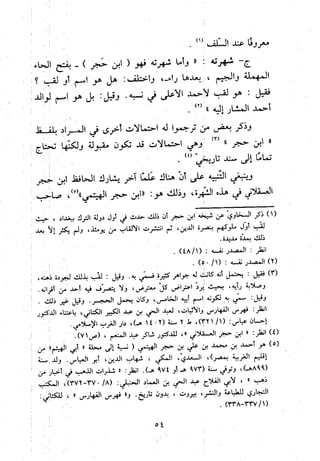 معروفًا عند السلف (١) .
ج- شهرته : » وأما شهرته فهو ( ابن حجر ) – بفتح الحاء
المهملة والجيم ، وبعدها راء- ، واختلف : هل هو اسم أو لقب ؟
فقيل : هو لقب لأحمد الأعلى في نسبه . وقيل : بل هو اسم لوالد
أحمد المشار إليه « (٢) .
وذكر بعض من ترجم له احتمالات أخرى في المراد بلفظ
» ابن حجر « (٣) وهي احتمالات قد تكون مقبولة ولكنها تحتاج
تمامًا إلى سند تاريخي (٤) .
وينبغي التنبيه على أن هناك علمًا آخر يشارك الحافظ ابن حجر
العسقلاني في هذه الشهرة ، وذلك هو: »ابن حجر الهيتمي«(٥)، صاحب
(١) ذكر السخاوي عن شيخه ابن حجر أن ذلك حدث في أول الدولة التركية ببغداد ، حيث
لقب أول ملوكهم بنصرة الدين، ثم انتشرت الألقاب من يومئذ ، ولم يكثر ذلك إلا بعد
ذلك بمدة مديدة.
انظر : المصدر نفسه : (٤٨/١) .
(٢) المصدر نفسه : (٥٠/١) .
(٣) فقيل : يحتمل أنه كانت له جواهر كثيرة فسمي به . وقيل : لقب بذلك لجودة ذهنه،
وصلابة رأيه، بحيث يرد اعتراض كل معترض، ولا يتصرف فيه أحد من أقرانه.
وقيل: سمي به لكونه اسم أبيه الخامس، وكان يعمل الحجر، وقيل غير ذلك.
انظر: فهرس الفهارس والأثبات، لعبد الحي بن عبد الكبير الكتاني، باعتناء الدكتور
إحسان عباس: (٣٢١/١)، ط ٢ سنة (١٤٠٢ هـ)، دار الغرب الإسلامي.
(٤) انظر: » ابن حجر العسقلاني « ، للدكتور شاكر عبد المنعم ، (ص٧١).
(٥) هو أحمد بن محمد بن علي بن حجر الهيتمي ( نسبة إلى محلة » أبي الهيتم« من
إقليم الغربية بمصر)، السعدي، المكي ، شهاب الدين، أبو العباس. ولد سنة
(٨٩٩هـ)، وتوفي سنة (٩٧٣ هـ أو ٩٧٤ هـ) . انظر: » شذرات الذهب في أخبار من
ذهب « ، لأبي الفلاح عبد الحي بن العماد الحنبلي: (٣٧٠/٨-٣٧٢)، المكتب
التجاري للطباعة والنشر، بيروت ، بدون تاريخ. و» فهرس الفهارس « ، للكتاني:
(٣٣٧/١-٣٣٨) .
٥٤